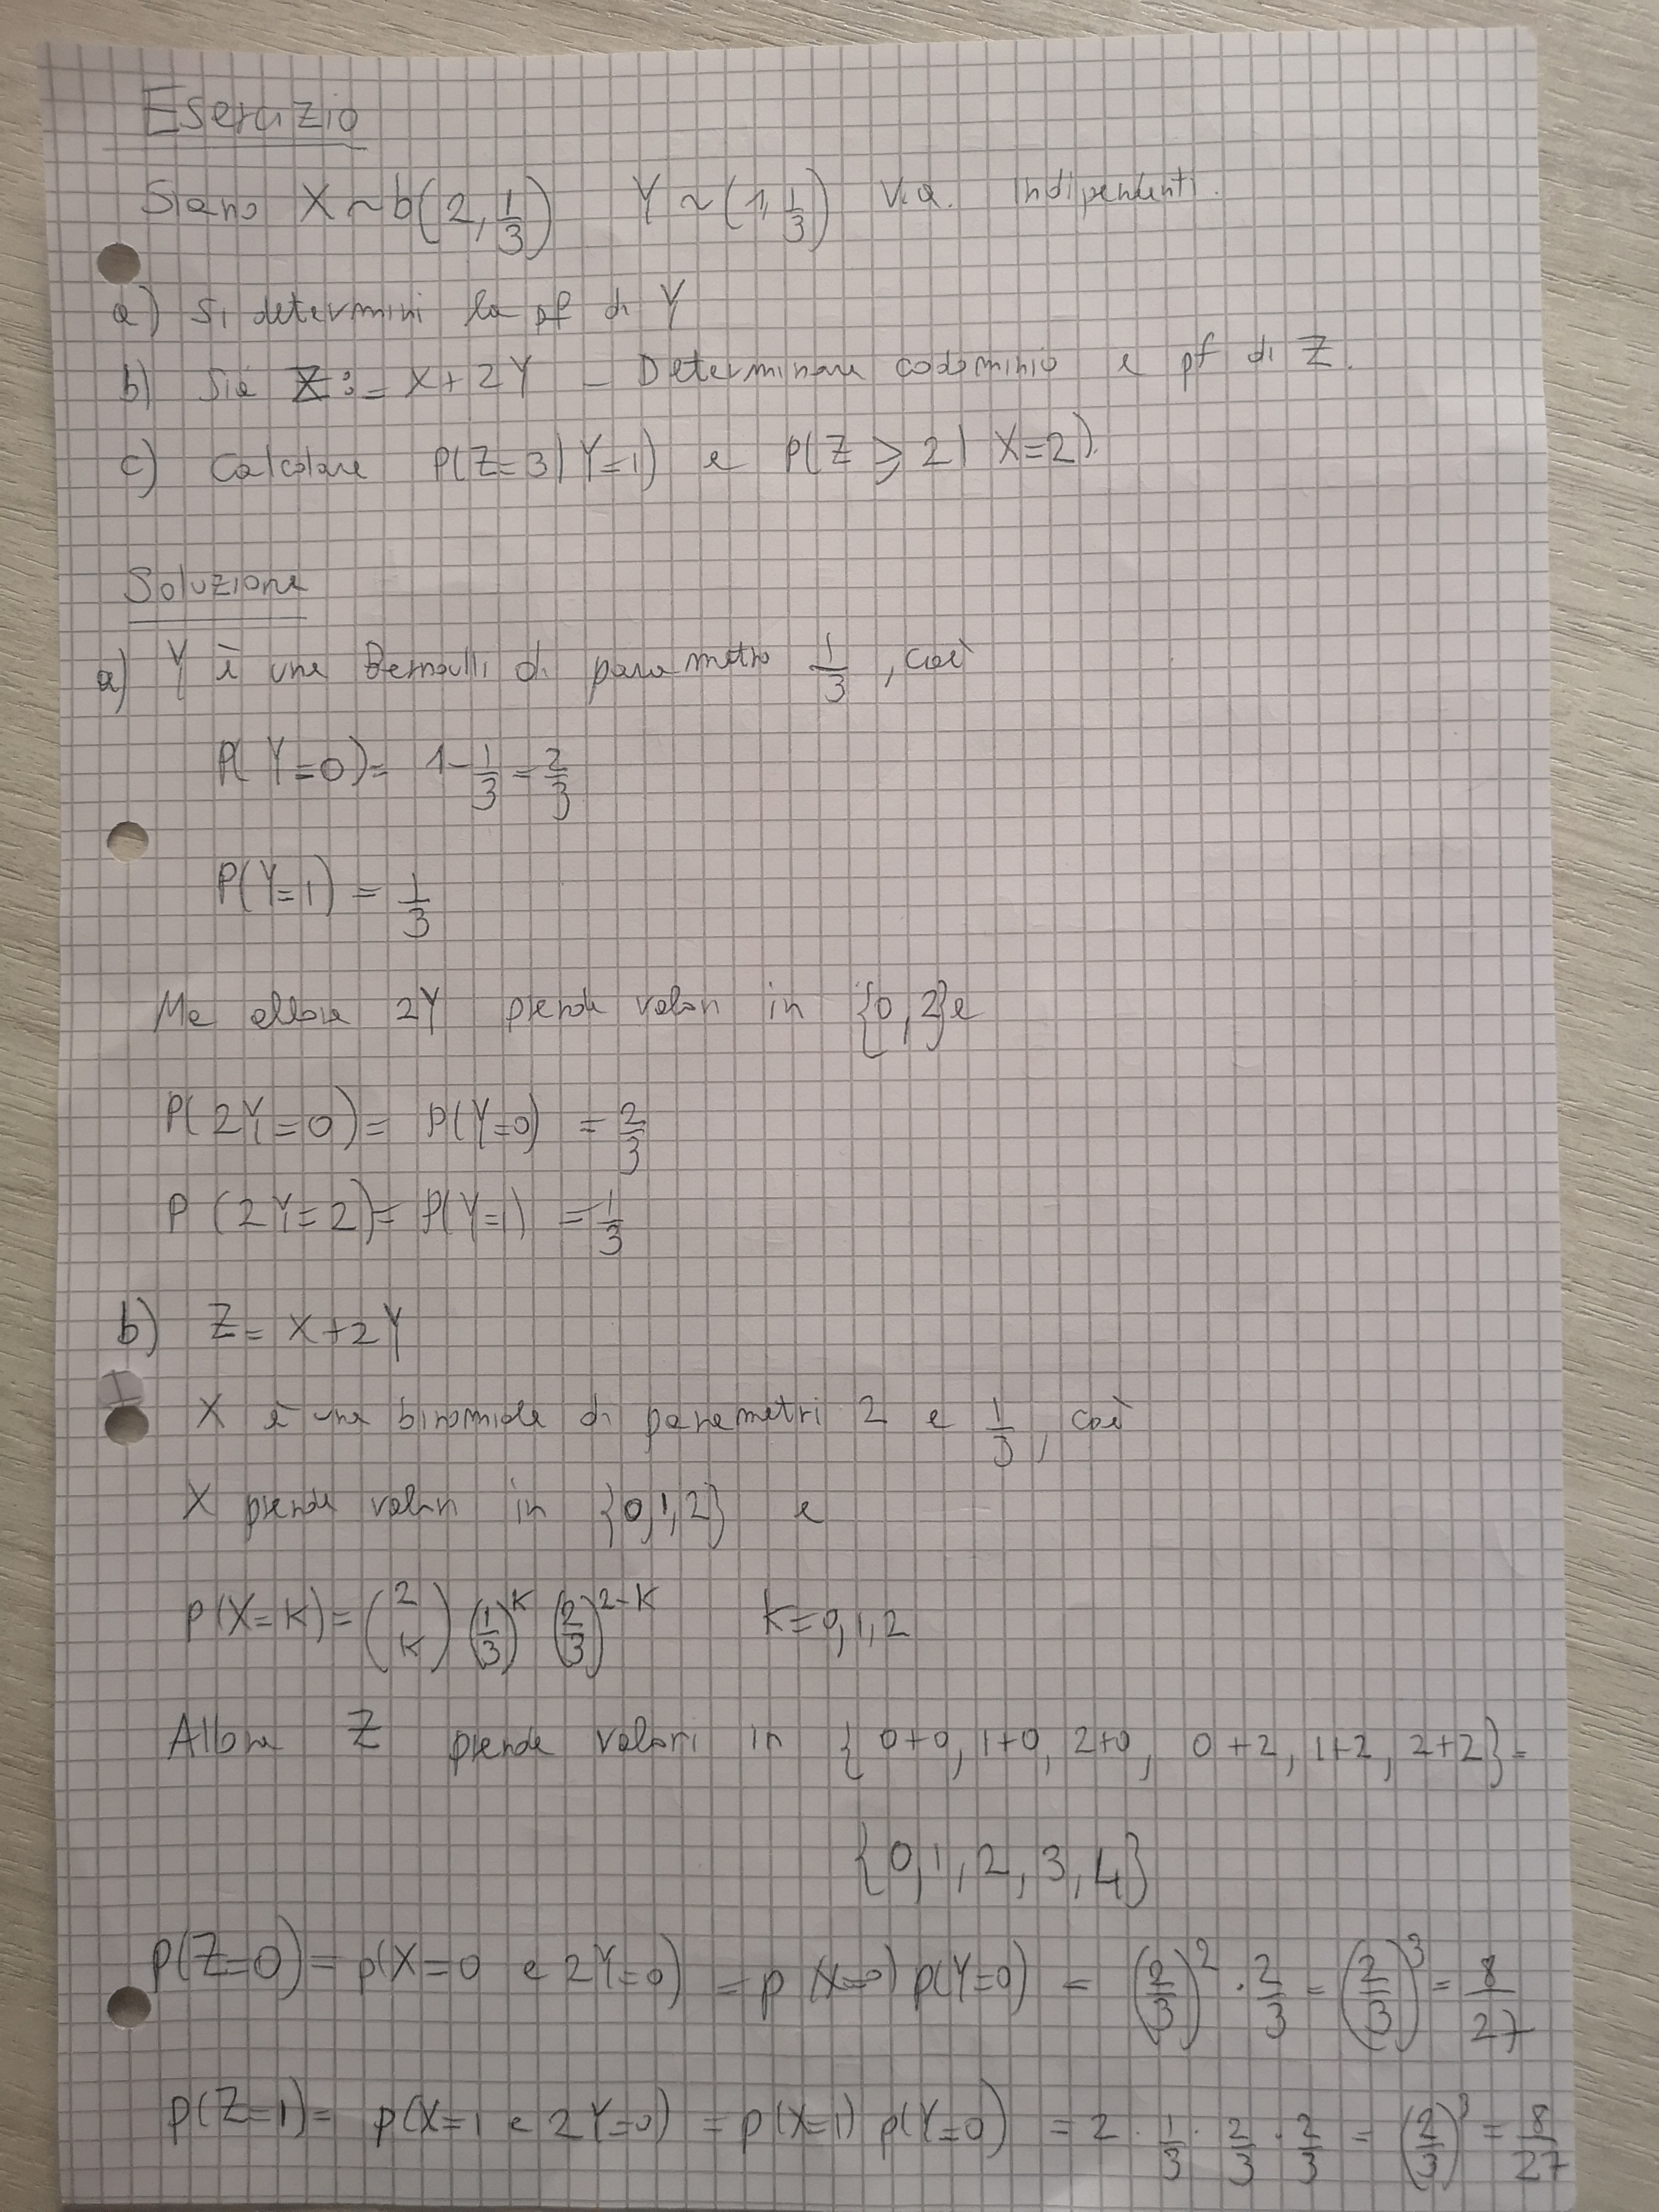 Esercizio
Siano X ~ b(2, 1/3) Y ~ (1, 1/3) v.a. indipendenti.
a) Si determini la pf di Y
b) Sia Z := X + 2Y - Determinare codominio e pf di Z.
c) Calcolare P(Z=3 | Y=1) e P(Z ≥ 2 | X=2).
Soluzione
a) Y è una Bernoulli di parametro 1/3, cioè
P(Y=0) = 1 - 1/3 = 2/3
P(Y=1) = 1/3
Ma allora 2Y prende valori in {0, 2} e
P(2Y=0) = P(Y=0) = 2/3
P(2Y=2) = P(Y=1) = 1/3
b) Z = X + 2Y
X è una binomiale di parametri 2 e 1/3, cioè
X prende valori in {0,1,2} e
P(X=K) = (2 K) (1/3)^K (2/3)^2-K K=0,1,2
Allora Z prende valori in {0+0, 1+0, 2+0, 0+2, 1+2, 2+2} =
{0,1,2,3,4}
P(Z=0) = p(X=0 e 2Y=0) = p(X=0) p(Y=0) = (2/3)^2 · 2/3 = (2/3)^3 = 8/27
p(Z=1) = p(X=1 e 2Y=0) = p(X=1) p(Y=0) = 2 · 1/3 · 2/3 · 2/3 = (2/3)^3 = 8/27